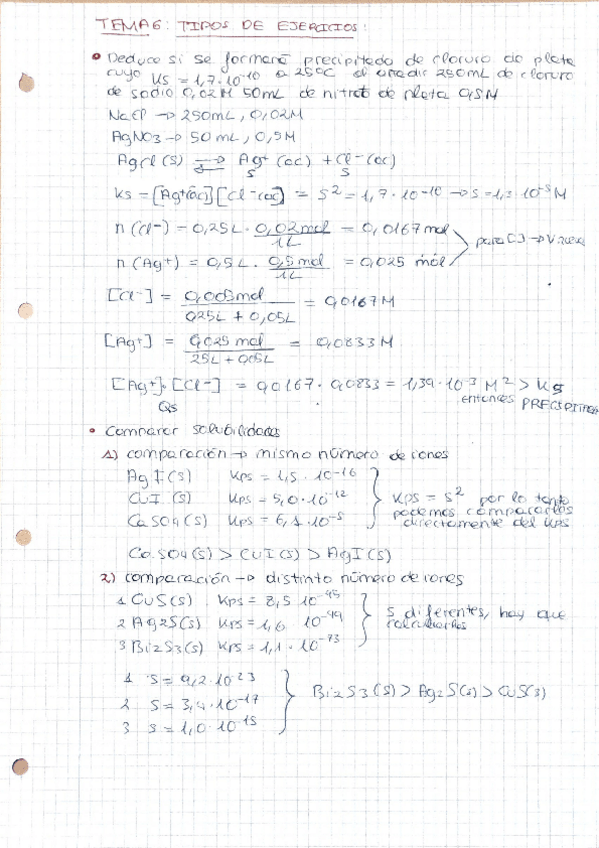 TEMA 6: TIPOS DE EJERCICIOS:
• Deduce si se formará precipitado de cloruro de plata
cuyo Ks = 1,7·10⁻¹⁰ a 25ºC al añadir 250mL de cloruro
de sodio 0,02M 50mL de nitrat de plata 0,5M
NaCl → 250mL, 0,02M
AgNO3 → 50mL, 0,5M
AgCl(s) ⇄ Ag⁺(ac) + Cl⁻(ac)
S S
Ks = [Ag⁺(ac)][Cl⁻(ac)] = S² = 1,7·10⁻¹⁰ → S = 1,3·10⁻⁵M
n(Cl⁻) = 0,25L · 0,02mol/1L = 0,0167mol
n(Ag⁺) = 0,5L · 0,5mol/1L = 0,025 mol
para [] →
[Cl⁻] = 0,005mol / 0,25L + 0,05L = 0,0167M
[Ag⁺] = 0,025 mol / 25L + 0,05L = 0,0833M
[Ag⁺]·[Cl⁻] = 0,0167·0,0833 = 1,39·10⁻³ M² > Ks
Qs
entonces PRECIPITA
• Comparar solubilidades
1) comparación → mismo número de iones
AgI(s) Kps = 1,5·10⁻¹⁶
CuI(s) Kps = 5,0·10⁻¹²
CaSO4(s) Kps = 6,1·10⁻⁵
Kps = S² por lo tanto
podemos compararlos
directamente del Kps
CaSO4(s) > CuI(s) > AgI(s)
2) comparación → distinto número de iones
1 CuS(s) Kps = 8,5·10⁻⁴⁵
2 Ag2S(s) Kps = 1,6·10⁻⁴⁹
3 Bi2S3(s) Kps = 1,1·10⁻⁷³
S diferentes, hay que
calcularlos
1 S = 9,2·10⁻²³
2 S = 3,4·10⁻¹⁷
3 S = 1,0·10⁻¹⁵
Bi2S3(s) > Ag2S(s) > CuS(s)